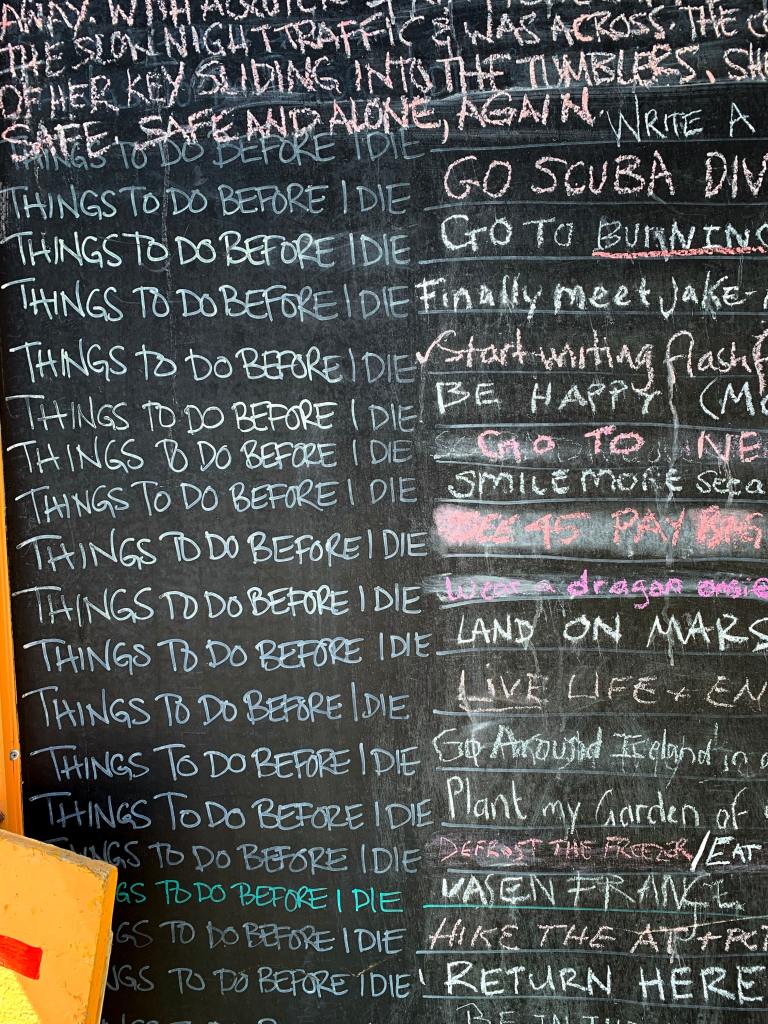 AWAY. WITH
THE SLOW NIGHT TRAFFIC & WAS ACROSS THE
OF HER KEY SLIDING INTO THE TUMBLERS. SHE
SAFE. SAFE AND ALONE, AGAIN.
THINGS TO DO BEFORE I DIE WRITE A
THINGS TO DO BEFORE I DIE GO SCUBA DIV
THINGS TO DO BEFORE I DIE GO TO BURNING
THINGS TO DO BEFORE I DIE Finally meet Jake
THINGS TO DO BEFORE I DIE Start writing flash f
THINGS TO DO BEFORE I DIE BE HAPPY (MO
THINGS TO DO BEFORE I DIE GO TO NE
THINGS TO DO BEFORE I DIE SMILE MORE
THINGS TO DO BEFORE I DIE 45 PAY
THINGS TO DO BEFORE I DIE Wear a dragon onsie
THINGS TO DO BEFORE I DIE LAND ON MARS
THINGS TO DO BEFORE I DIE LIVE LIFE + EN
THINGS TO DO BEFORE I DIE Go Around Iceland in a
THINGS TO DO BEFORE I DIE Plant my Garden of
NGS TO DO BEFORE I DIE DEFROST THE FREEZER/EAT
GS TO DO BEFORE I DIE VASEN FRANCE
GS TO DO BEFORE I DIE HIKE THE AT + PCT
NGS TO DO BEFORE I DIE RETURN HERE
BE IN